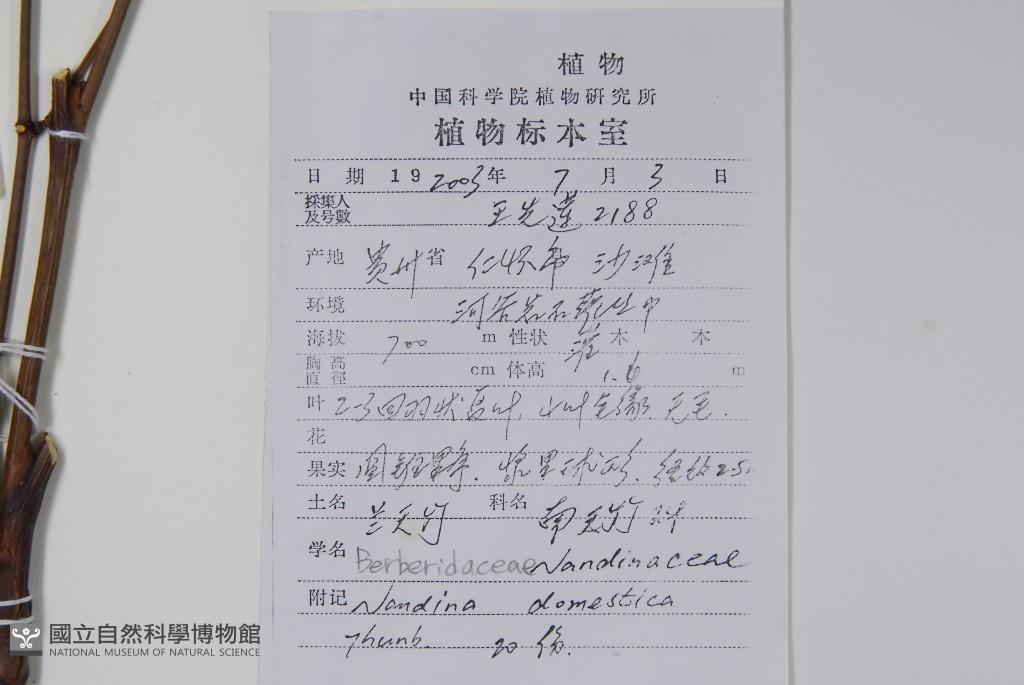 植物
中国科学院植物研究所
植物标本室
日 期 19 2003年 7 月 3 日
採集人
及号數 王先莲 2188
产地 贵州省 仁怀市 沙滩
环境 河谷岩石丛中
海拔 700 m 性状 灌木 本
胸高
直徑 cm 体高 1.6 m
叶 2-3回羽状复叶, 小叶全缘, 无毛.
花
果实 圆锥果序. 浆果球形. 径约2.5
土名 兰天竹 科名 南天竹科
学名 Berberidaceae Nandinaceae
附记 Nandina domestica
Thunb. 20份.
國立自然科學博物館
NATIONAL MUSEUM OF NATURAL SCIENCE